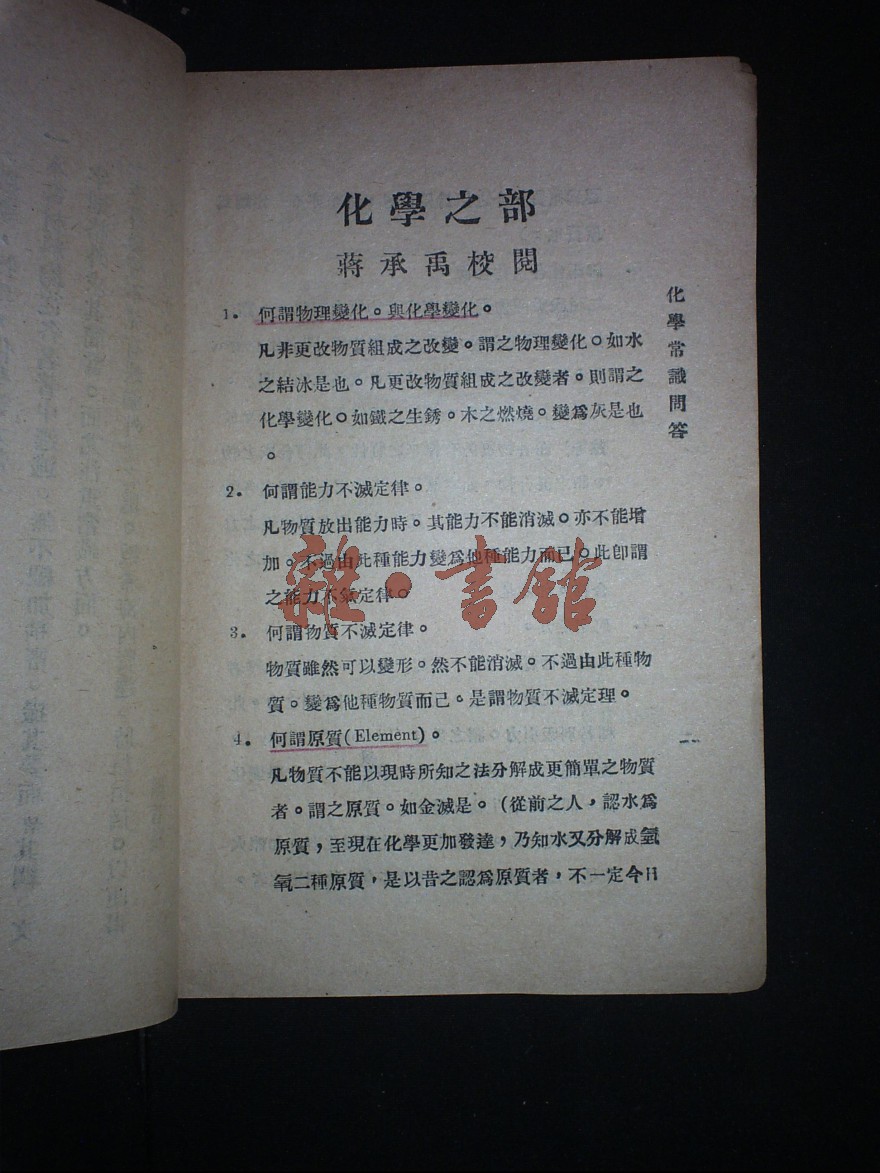 化學之部
蔣承禹校閱
化學常識問答
1. 何謂物理變化。與化學變化。
凡非更改物質組成之改變。謂之物理變化。如水
之結冰是也。凡更改物質組成之改變者。則謂之
化學變化。如鐵之生銹。木之燃燒。變爲灰是也
。
2. 何謂能力不滅定律。
凡物質放出能力時。其能力不能消滅。亦不能增
加。不過由此種能力變爲他種能力而已。此卽謂
之能力不滅定律。
3. 何謂物質不滅定律。
物質雖然可以變形。然不能消滅。不過由此種物
質。變爲他種物質而己。是謂物質不滅定理。
4. 何謂原質(Element)。
凡物質不能以現時所知之法分解成更簡單之物質
者。謂之原質。如金滅是。(從前之人，認水爲
原質，至現在化學更加發達，乃知水又分解成氫
氧二種原質，是以昔之認爲原質者，不一定今日
雜·書館